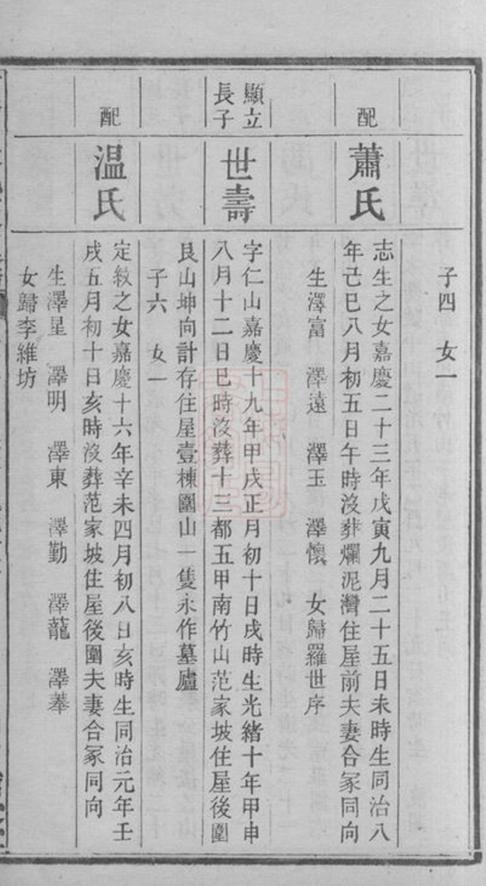 子四　女一
配
蕭氏
志生之女嘉慶二十三年戊寅九月二十五日未時生同治八
年己巳八月初五日午時沒葬爛泥灣住屋前夫妻合冢同向
生澤富　澤遠　澤玉　澤懷　女歸羅世序
顯立
長子
世壽
字仁山嘉慶十九年甲戌正月初十日戌時生光緒十年甲申
八月十二日巳時沒葬十三都五甲南竹山范家坡住屋後圍
艮山坤向計存住屋壹棟圍山一隻永作墓廬
子六　女一
配
温氏
定紋之女嘉慶十六年辛未四月初八日亥時生同治元年壬
戌五月初十日亥時沒葬范家坡住屋後圍夫妻合冢同向
生澤星　澤明　澤東　澤勤　澤龍　澤菶
女歸李維坊